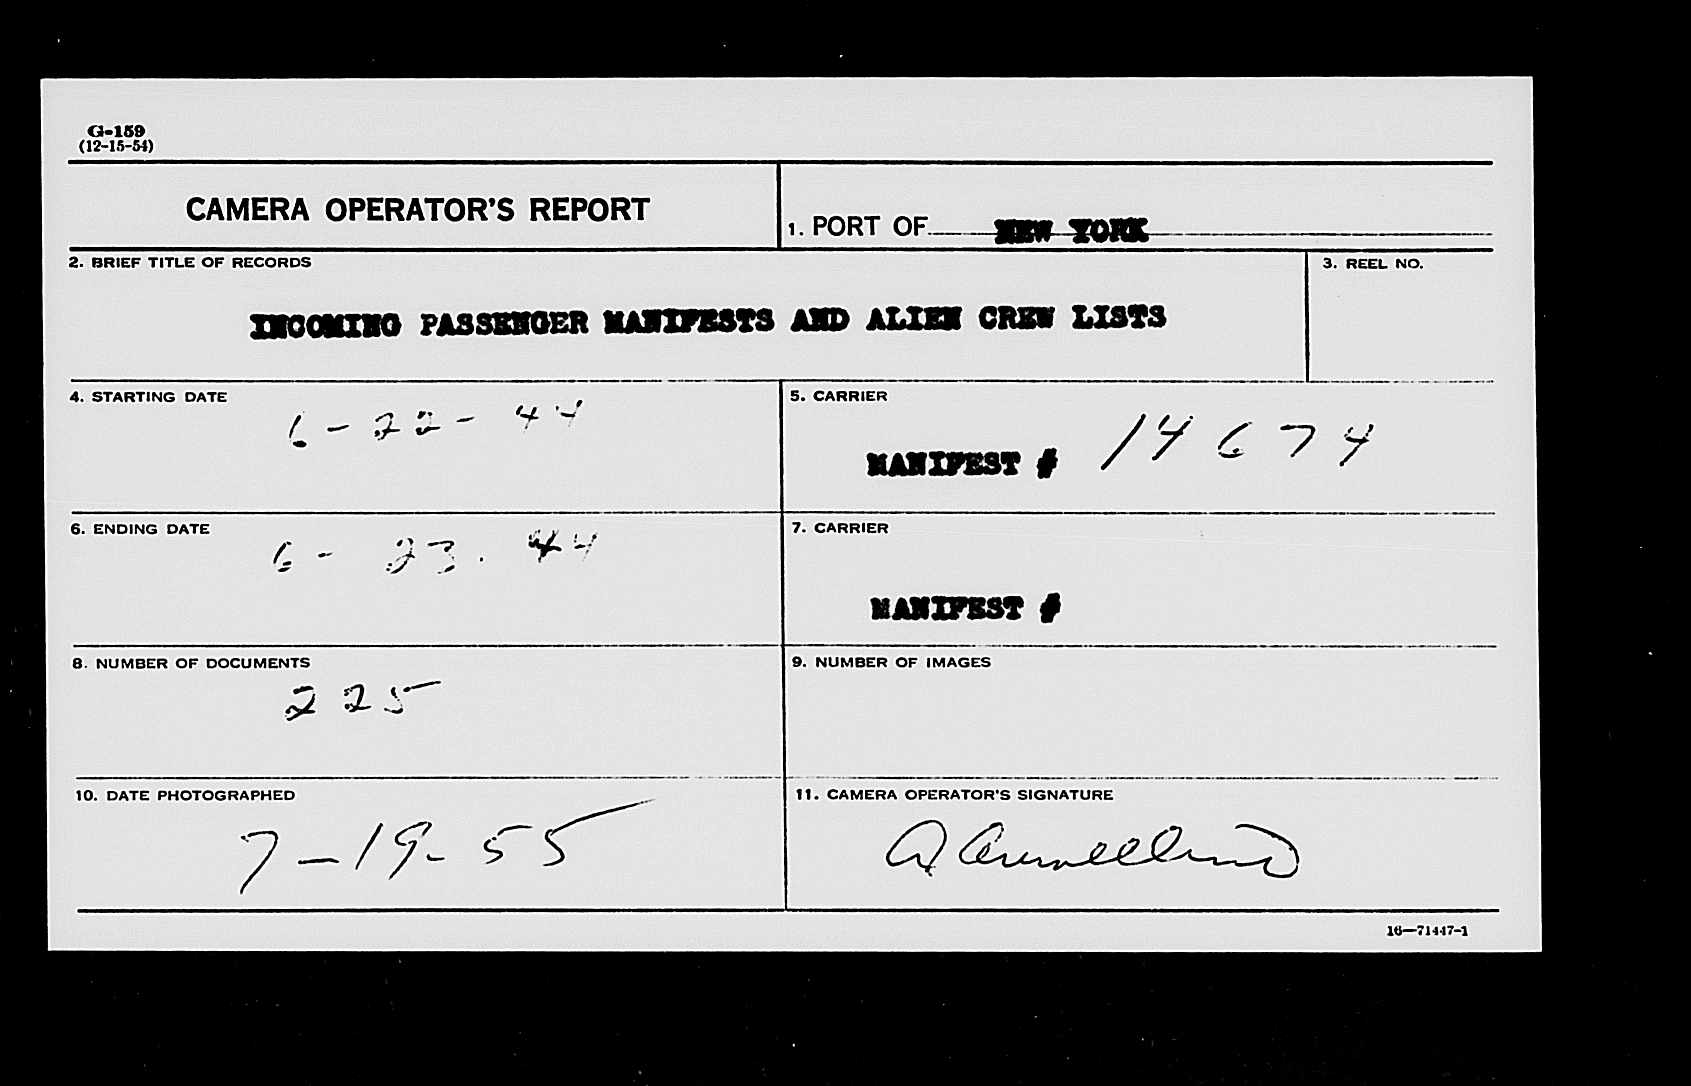 G-159
(12-15-54)
CAMERA OPERATOR'S REPORT
1. PORT OF NEW YORK
2. BRIEF TITLE OF RECORDS
3. REEL NO.
INCOMING PASSENGER MANIFESTS AND ALIEN CREW LISTS
4. STARTING DATE
6-22-44
5. CARRIER
MANIFEST # 14674
6. ENDING DATE
6-23.44
7. CARRIER
MANIFEST #
8. NUMBER OF DOCUMENTS
225
9. NUMBER OF IMAGES
10. DATE PHOTOGRAPHED
7-19-55
11. CAMERA OPERATOR'S SIGNATURE
16—71447-1